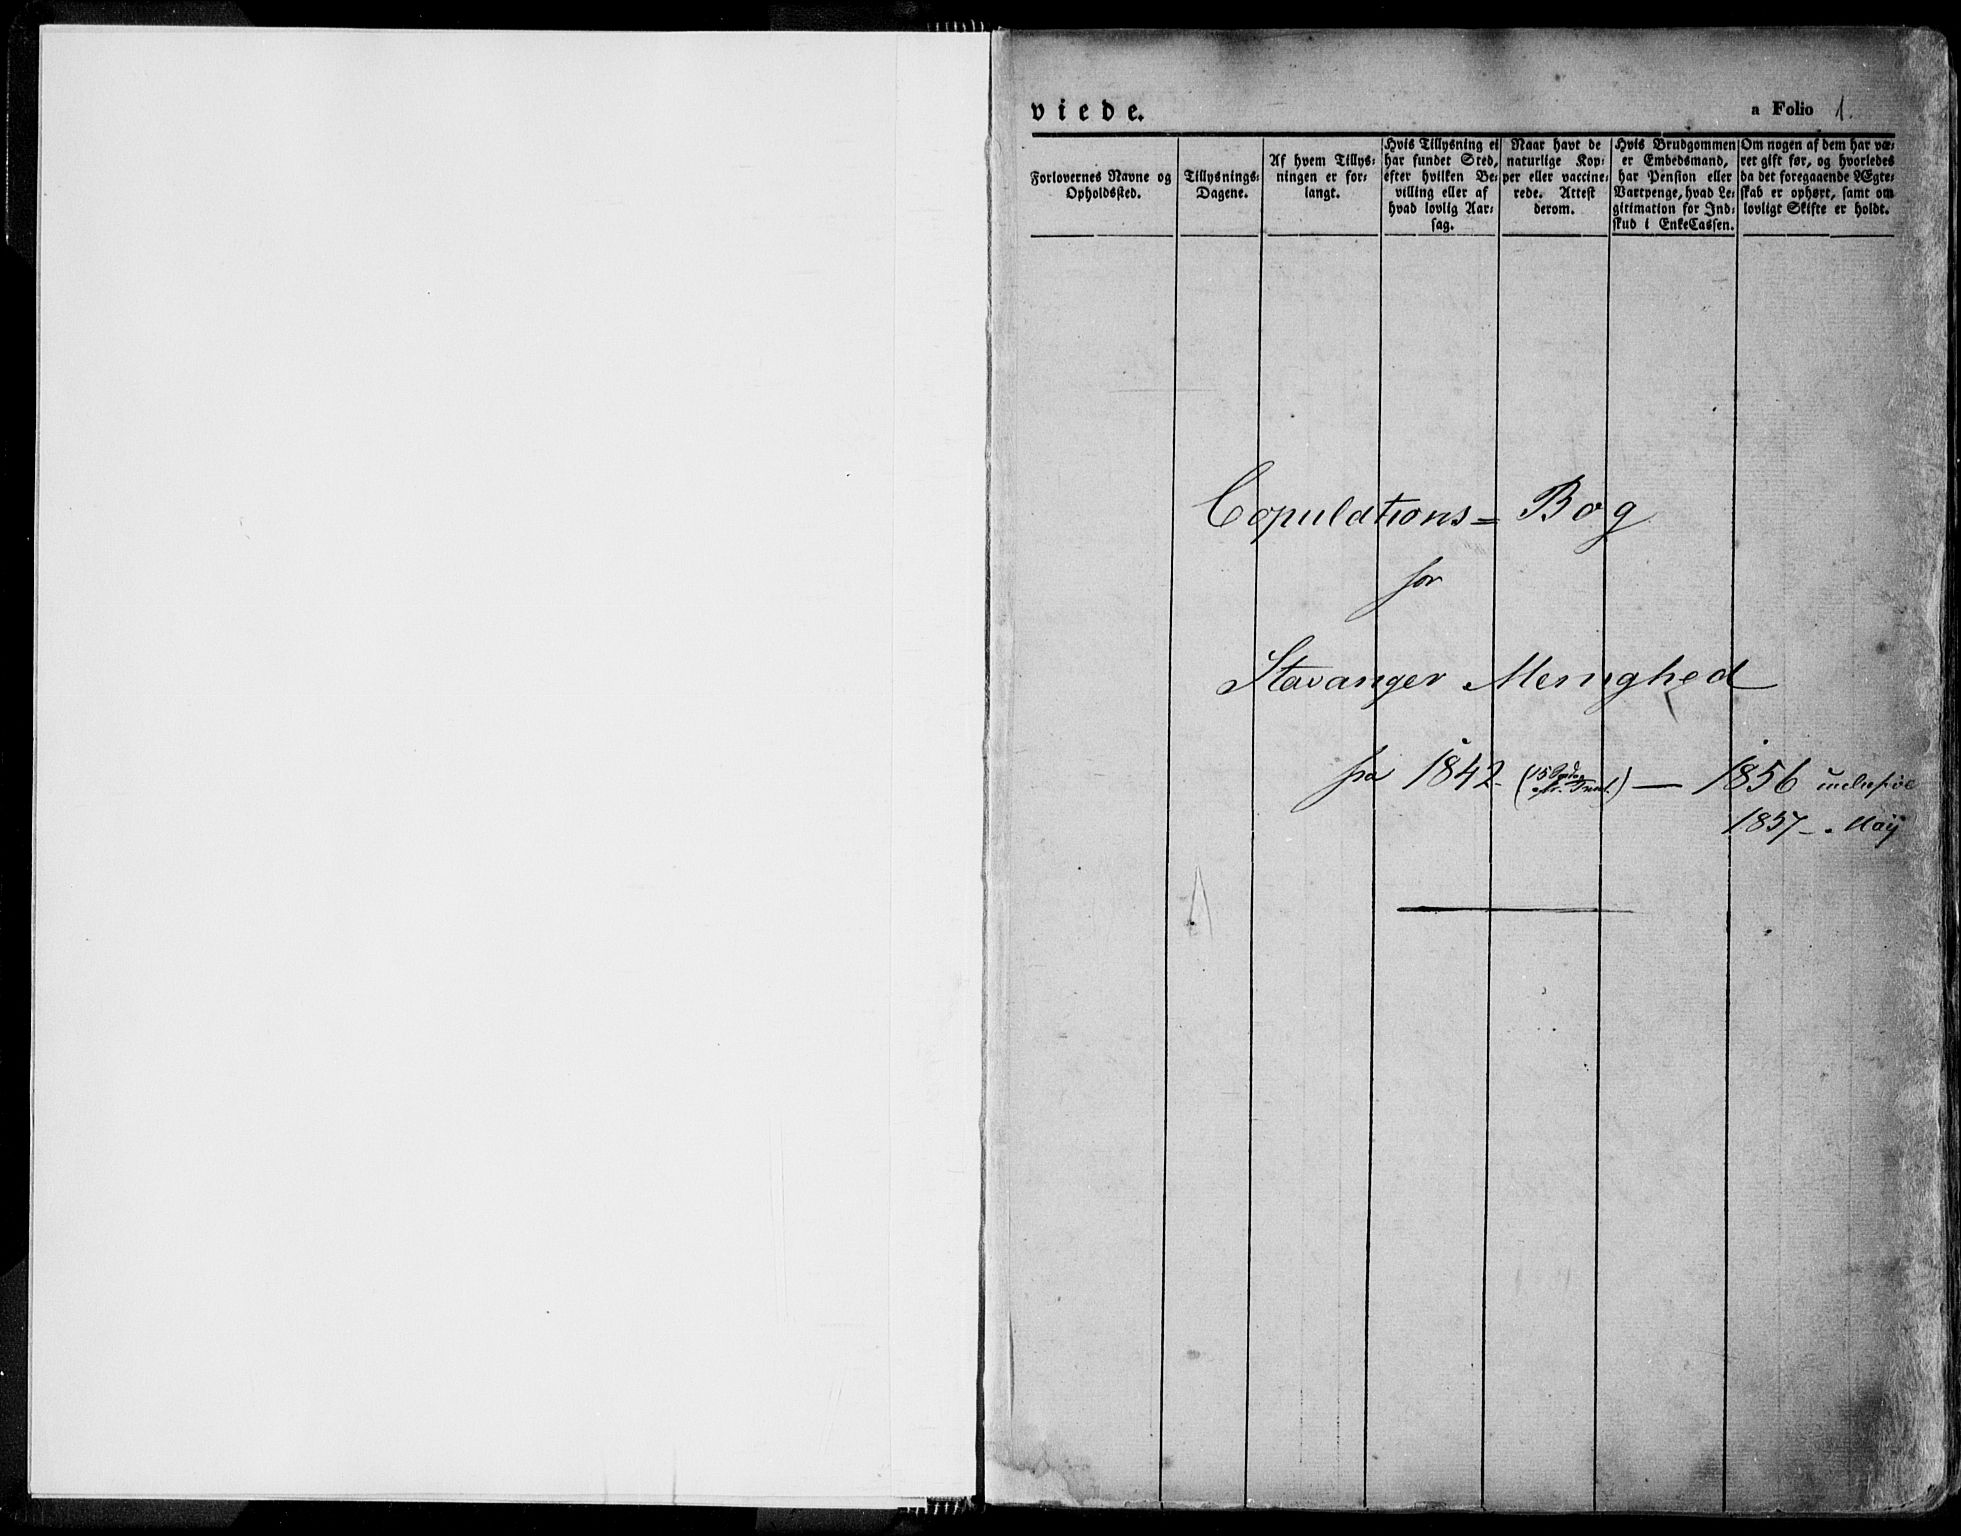 viede.
a Folio 1.
Forlovernes Navne og
Opholdssted.
Tillysnings-
Dagene.
Af hvem Tillys-
ningen er for-
langt.
Hvis Tillysning ei
har fundet Sted,
efter hvilken Be-
villing eller af
hvad lovlig Aar-
sag.
Naar havt de
naturlige Kop-
per eller vaccine-
rede. Attest
derom.
Hvis Brudgommen
er Embedsmand,
har Pension eller
Vartpenge, hvad Le-
gitimation for Ind-
skud i EnkeCassen.
Om nogen af dem har væ-
ret gift før, og hvorledes
da det foregaaende Ægte-
skab er ophørt, samt om
lovligt Skifte er holdt.
Copulations= Bog
for
Stavanger Menighed
fra 1842 (15 Søndag
efter Trinit.) — 1856 inclusive
1857 - Maij